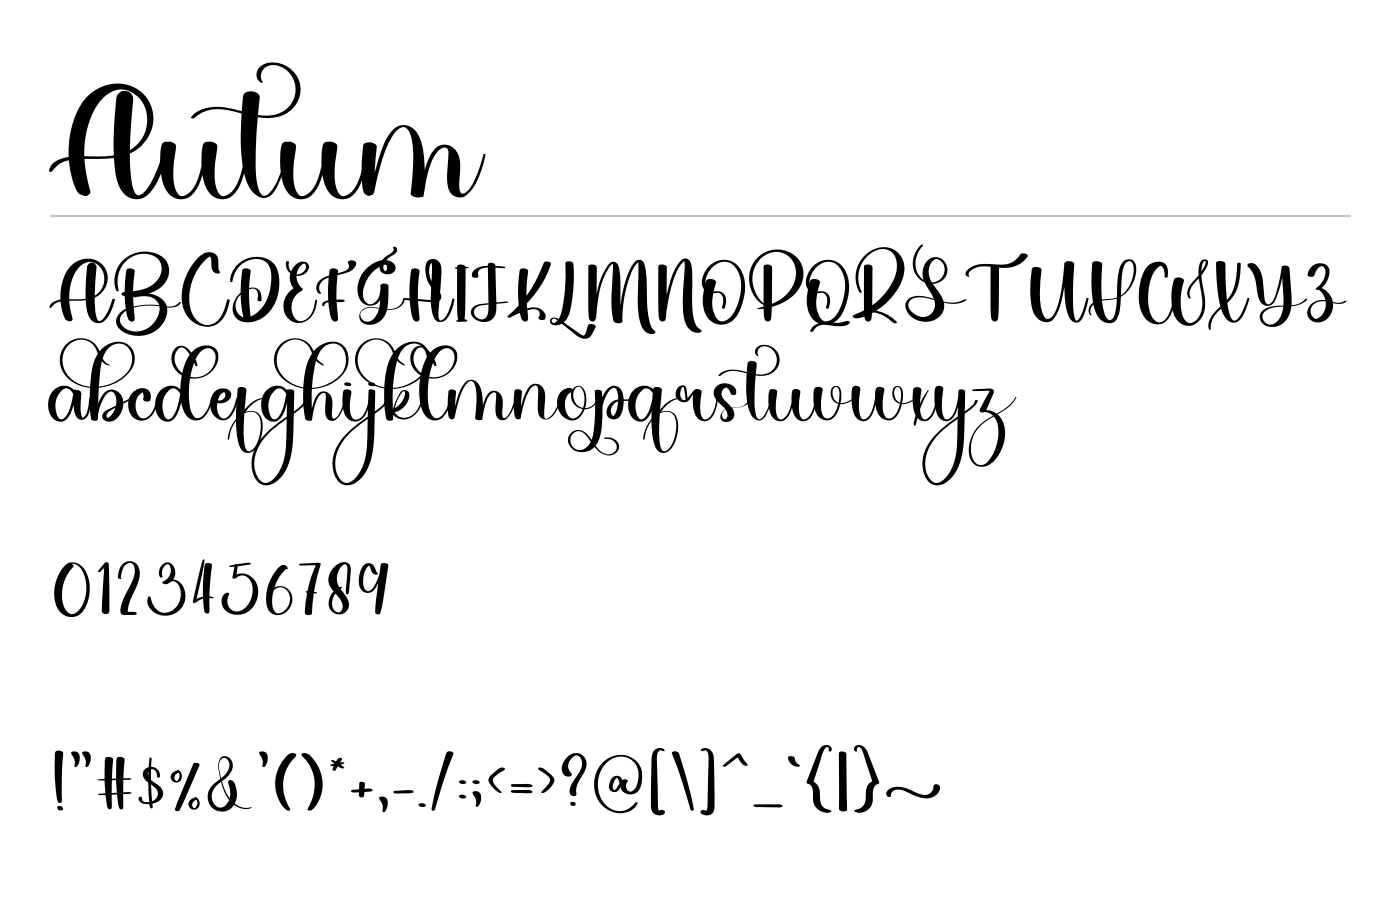 Autum
ABCDEFGHIJKLMNOPQRSTUVWXYZ
abcdefghijklmnopqrstuvwxyz
0123456789
!"#$%&'()*+,-./:;<=>?@[\]^_`{|}~